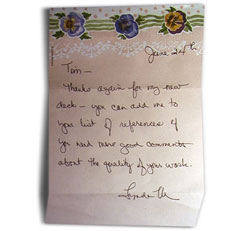 June 24th
Tim -
Thanks again for my new
deck - you can add me to
your list of references if
you need more good comments
about the quality of your work.